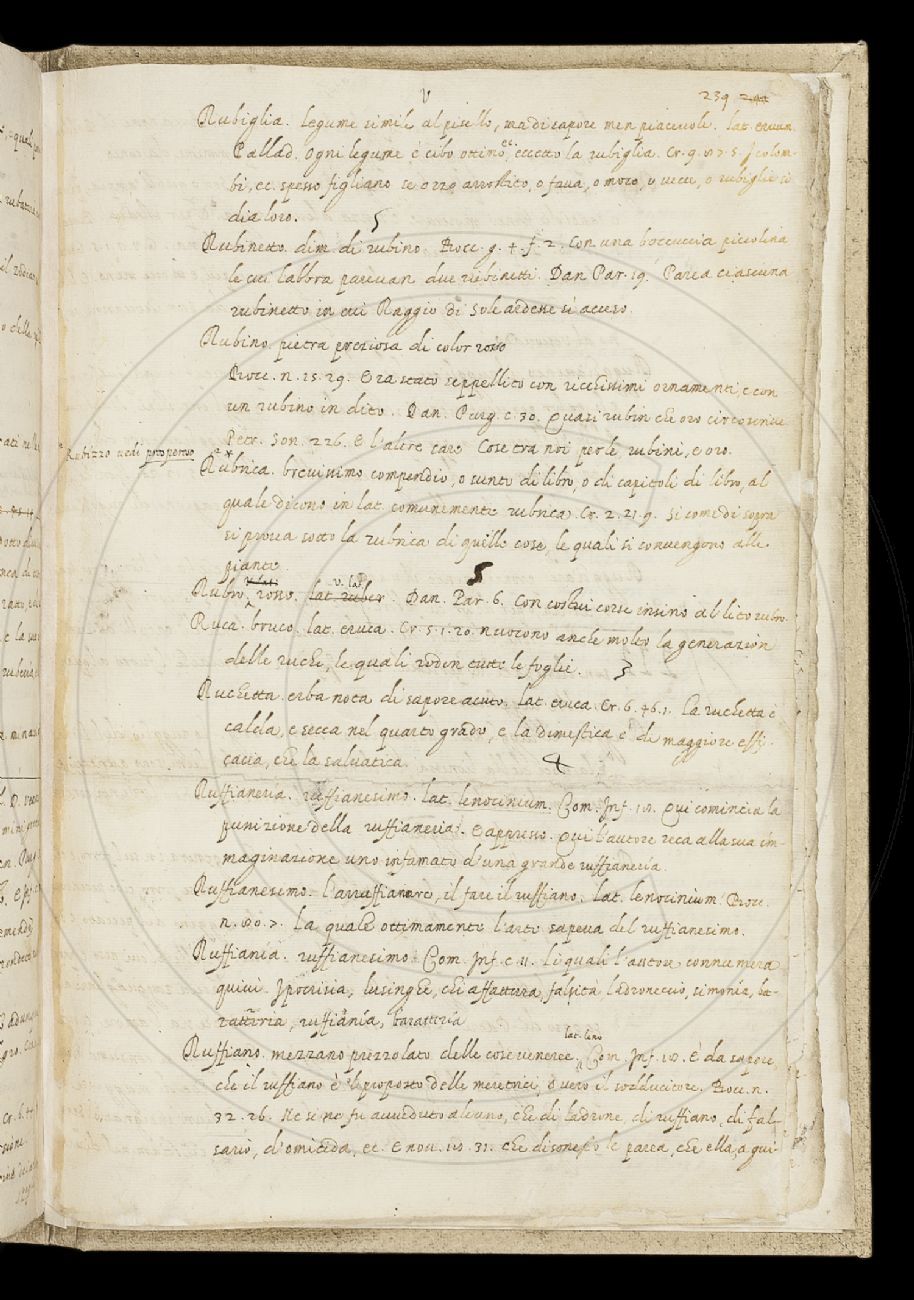 V
239 244
Rubiglia. Legume simile al pisello, ma di sapore men piacevole. lat. ervum
Pallad. ogni legume è cibo ottimo ec. eccetto la rubiglia. Cr. 9. 87. 5. I colom-
bi, ec. spesso figliano se orzo arrostito, o fava, o moco, o vecce, o rubiglie si
dia loro.
5
Rubinetto. dim. di rubino. Bocc. g. 4. f. 2. Con una boccuccia piccolina
le cui labbra parevan due rubinetti. Dan Par. 19. Parea ciascuna
rubinetto in cui Raggio di Sole ardesse sì acceso.
Rubino pietra preziosa di color rosso
Bocc. n. 15. 29. Era stato seppellito con ricchissimi ornamenti, e con
un rubino in dito. Dan. Purg. c. 30. Quasi rubin che oro circoscrive
Petr. Son. 226. E l'altre care Cose tra noi perle, rubini, e oro.
* Rubizzo vedi prosperoso
Rubrica. brevissimo compendio, o sunto di libro, o di capitoli di libro, al
quale dicono in lat. comunemente rubrica. Cr. 2. 21. 9. Si come di sopra
si prova sotto la rubrica di quelle cose, le quali si convengono alle
piante.
5
Rubro, rosso. lat. ruber. Dan. Par. 6. Con costui corse insino al lito rubro
Ruca. bruco. lat. eruca. Cr. 5. 1. 20. nuocono anche molto la generazion
delle ruche, le quali rodon tutte le foglie.
3
Ruchetta. erba nota di sapore acuto. lat. eruca. Cr. 6. 46. 1. La ruchetta è
calda, e secca nel quarto grado, e la dimestica è di maggiore effi-
cacia, che la salvatica.
4
Ruffianeria. ruffianesimo. lat. lenocinium. Com. Inf. 18. Qui comincia la
punizione della ruffianeria. E appresso. Qui l'autore reca alla sua im-
maginazione uno infamato d'una grande ruffianeria.
Ruffianesimo. l'arruffianare, il fare il ruffiano. lat. lenocinium. Bocc.
n. 80. 7. La quale ottimamente l'arte sapeva del ruffianesimo.
Ruffianía. ruffianesimo. Com. Inf. c. 11. li quali l'autore connumera
quivi. Ipocrisia, lusinghe, chi affattura, falsità ladroneccio, simonia, ba-
rattería, ruffianía, barattería
lat. leno
Ruffiano. mezzano prezzolato delle cose veneree. Com. Inf. 18. È da sapere,
che il ruffiano è il proposto delle meretrici, overo il sodducitore. Bocc. n.
32. 26. Nè se ne fu avveduto alcuno, che di ladrone, di ruffiano, di fal-
sario, d'omicida, ec. E nov. 80. 31. che disonesto le parea, che ella, a gui-